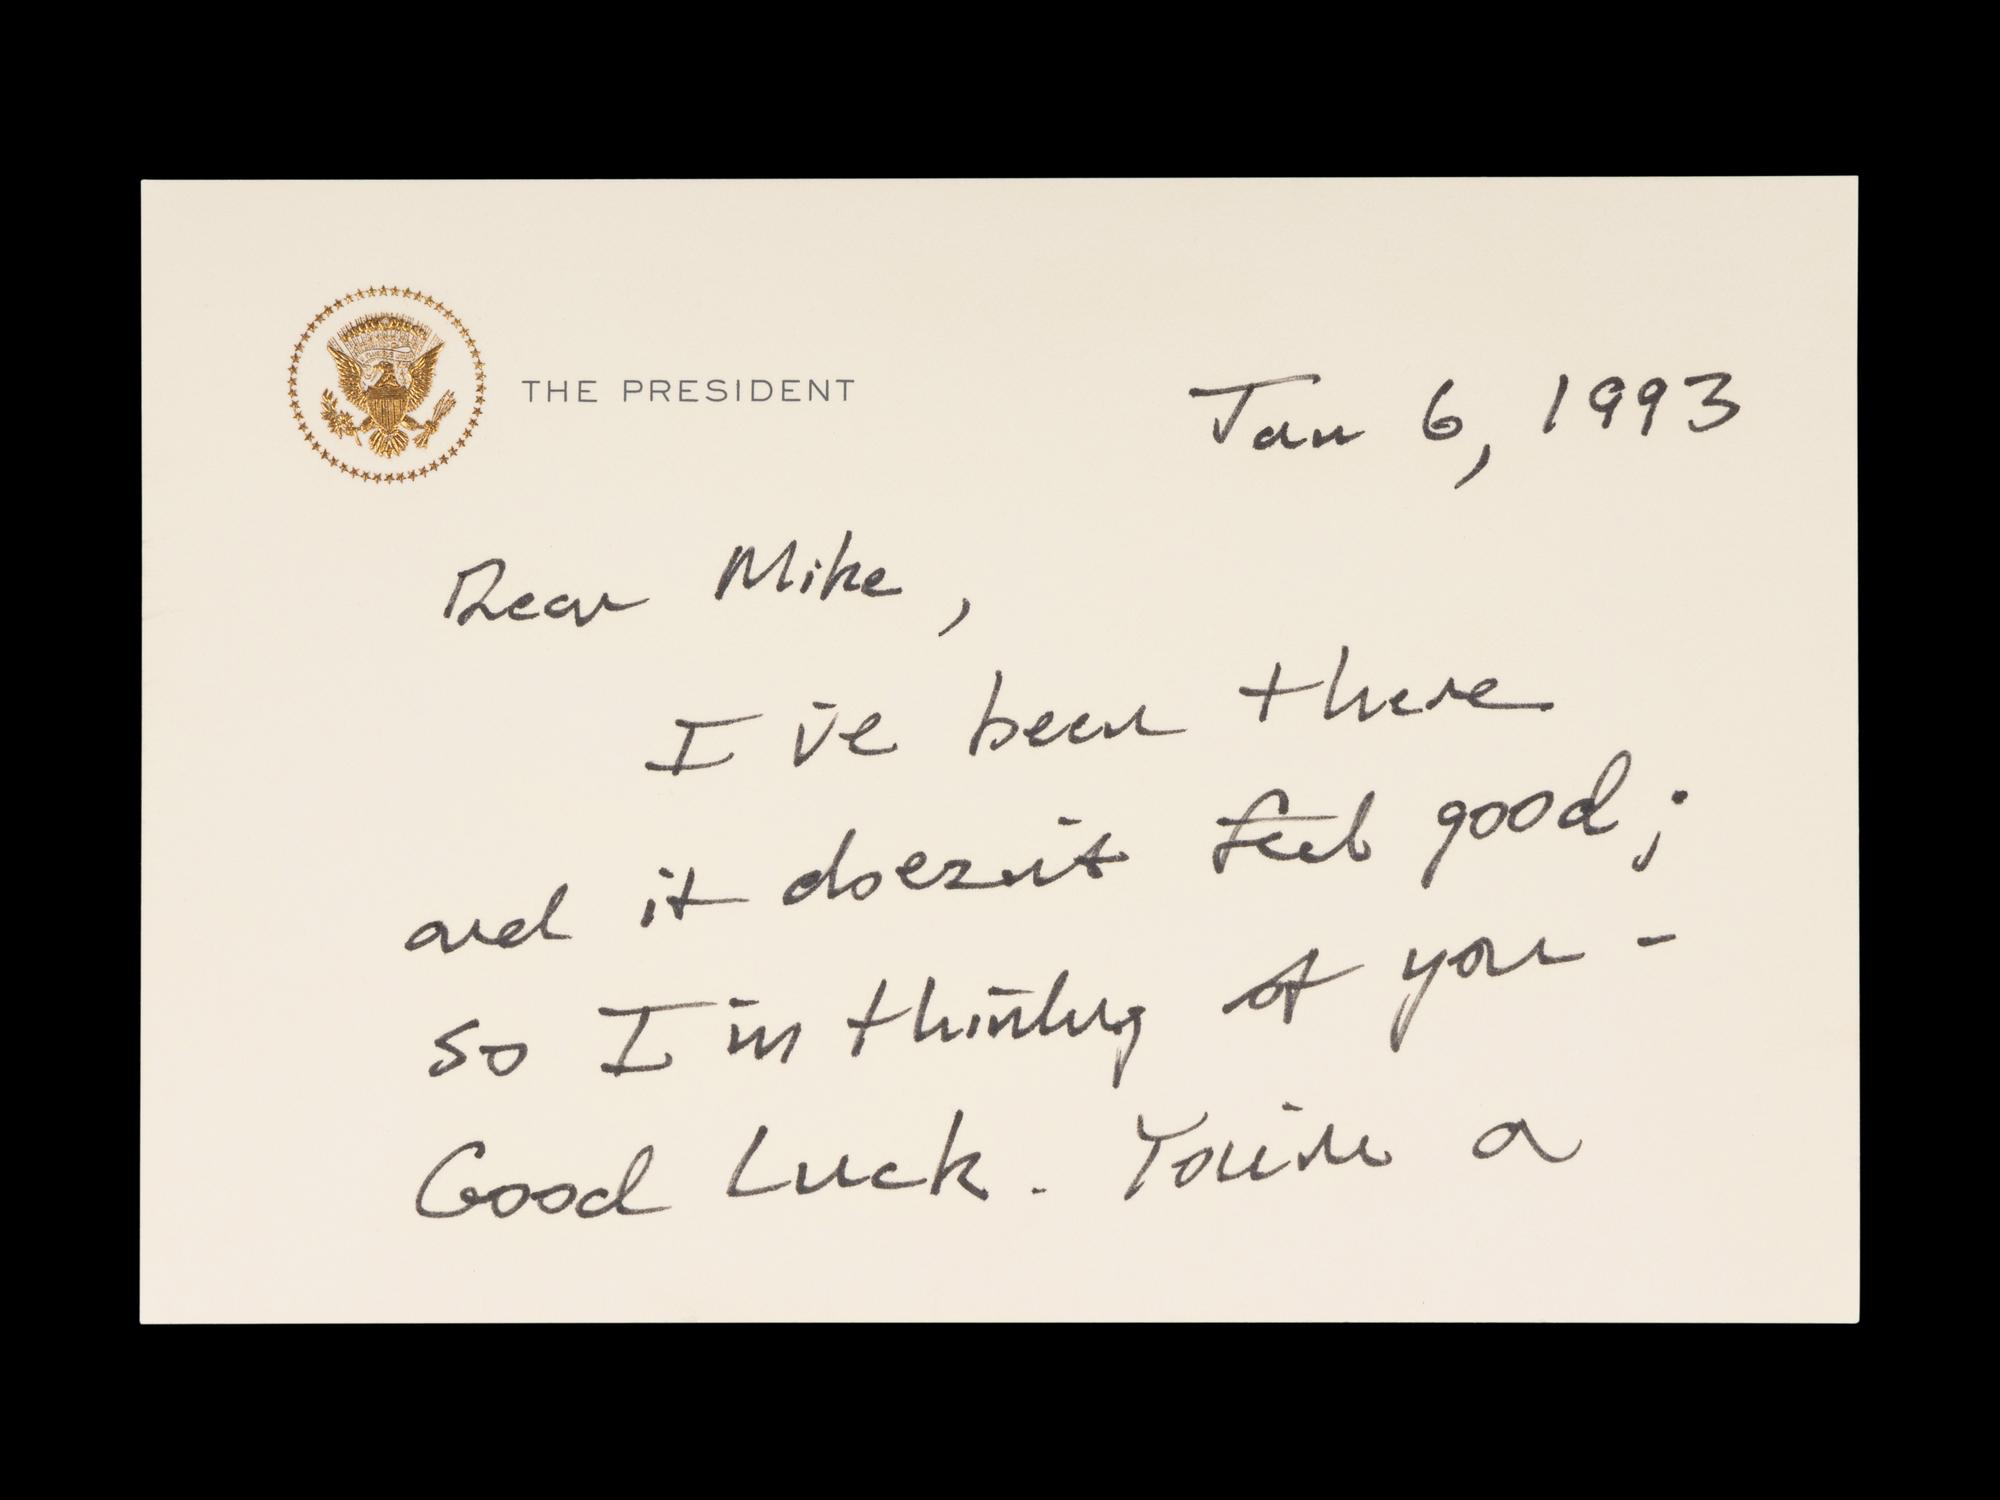 THE PRESIDENT
Jan 6, 1993
Dear Mike,
I've been there
and it doesn't feel good;
so I'm thinking of you -
Good Luck. You're a